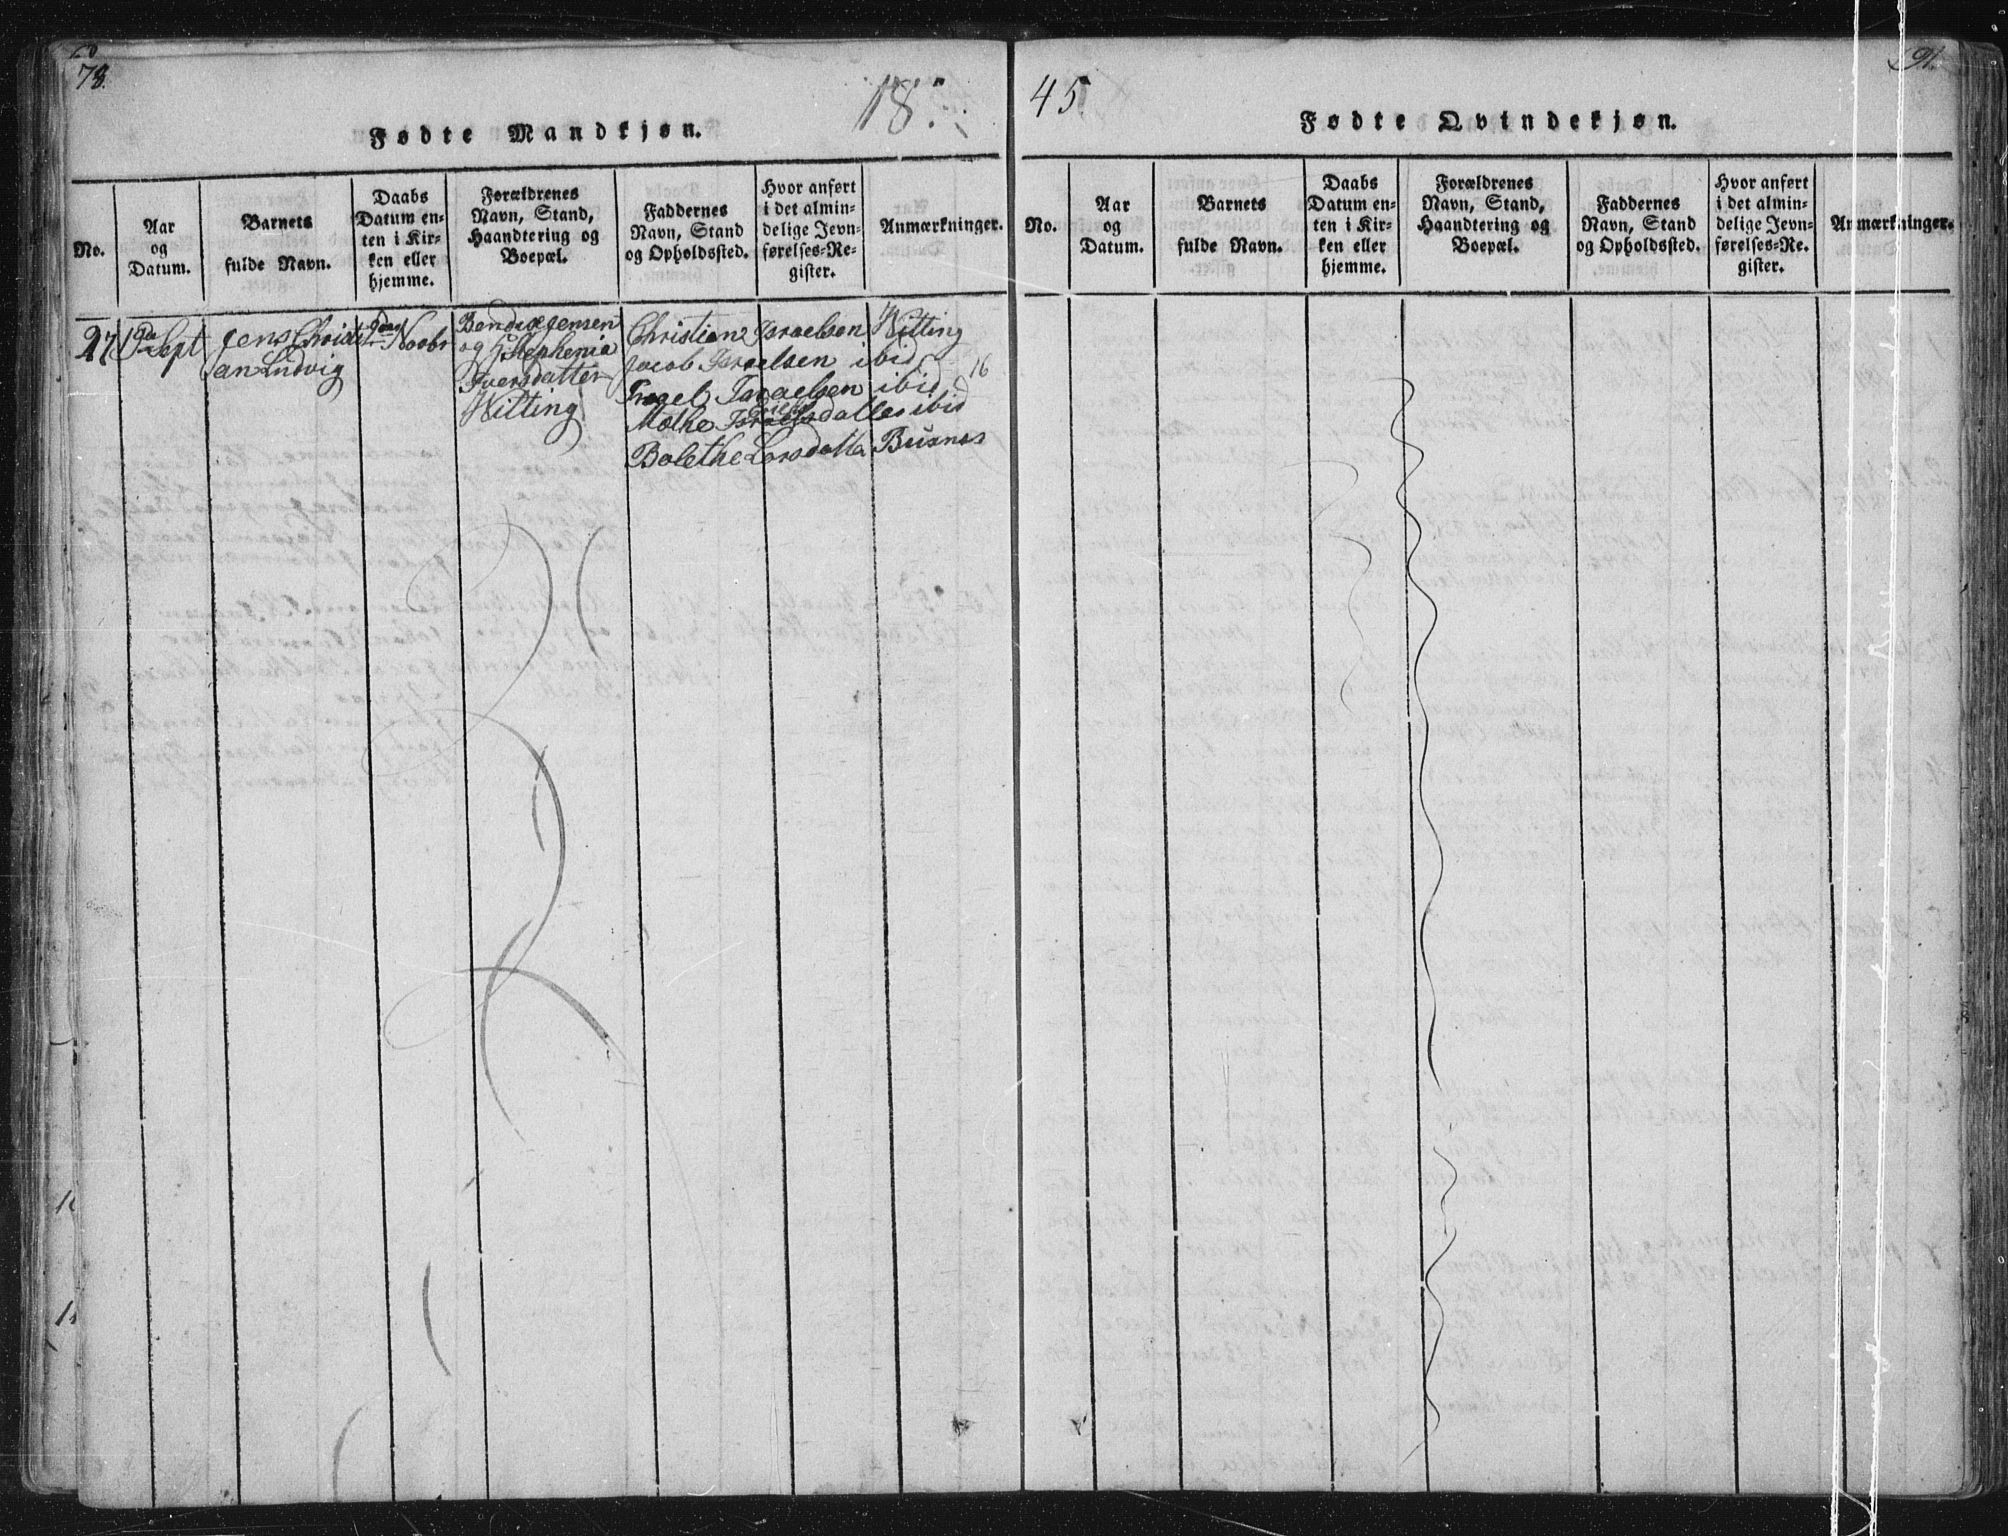 78.
18
45
91.
Fødte Mandkjøn.
No.
Aar
og
Datum.
Barnets
fulde Navn.
Daabs
Datum en-
ten i Kir-
ken eller
hjemme.
Forældrenes
Navn, Stand,
Haandtering og
Boepæl.
Faddernes
Navn, Stand
og Opholdssted.
Hvor anført
i det almin-
delige Jevn-
førelses-Re-
gister.
Anmærkninger.
27
Sept
Jens Christi
an Ludvig
Novbr
Bendix Jensen
og Stephenia
Iversdatter
Hilting
Christian Israelsen Hilting
Jacob Israelsen ibid
Israelsen ibid
16
Mathe datter ibid
Bolethe Larsdatter Busnes
Fødte Qvindekjøn.
No.
Aar
og
Datum.
Barnets
fulde Navn.
Daabs
Datum en-
ten i Kir-
ken eller
hjemme.
Forældrenes
Navn, Stand,
Haandtering og
Boepæl.
Faddernes
Navn, Stand
og Opholdssted.
Hvor anført
i det almin-
delige Jevn-
førelses-Re-
gister.
Anmærkninger.